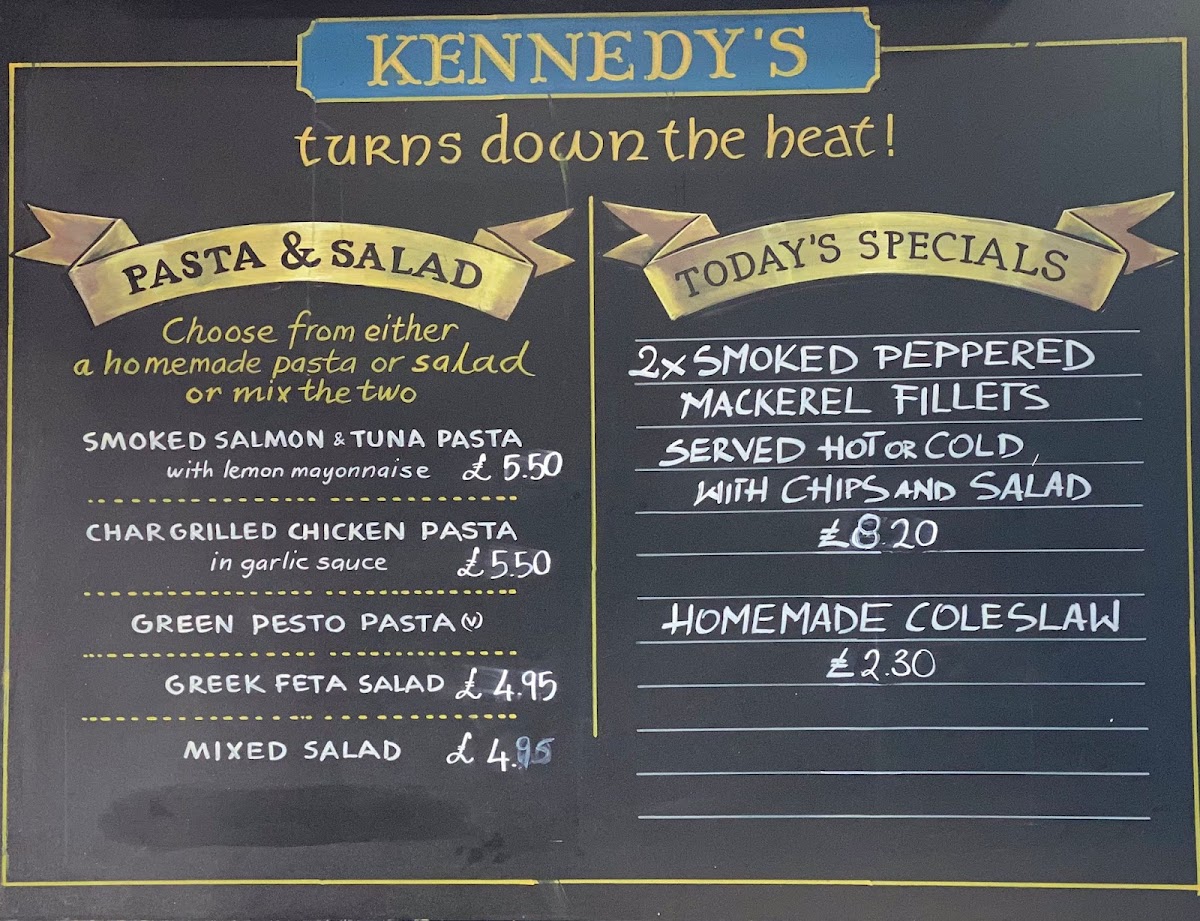 KENNEDY'S
turns down the heat!
PASTA & SALAD
Choose from either
a homemade pasta or salad
or mix the two
SMOKED SALMON & TUNA PASTA
with lemon mayonnaise £5.50
CHARGRILLED CHICKEN PASTA
in garlic sauce £5.50
GREEN PESTO PASTA (V)
GREEK FETA SALAD £4.95
MIXED SALAD £4.95
TODAY'S SPECIALS
2x SMOKED PEPPERED
MACKEREL FILLETS
SERVED HOT OR COLD,
WITH CHIPS AND SALAD
£8.20
HOMEMADE COLESLAW
£2.30